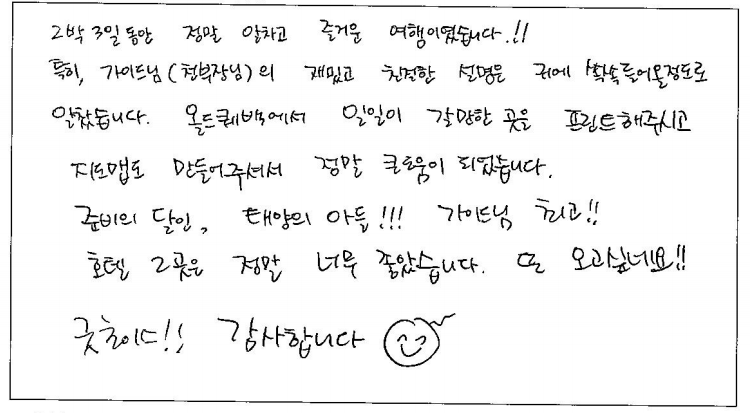 2박 3일동안 정말 알차고 즐거운 여행이였습니다.!!
특히, 가이드님(천부장님)의 재밌고 친절한 설명은 귀에 확속들어올정도로
알찼습니다. 올드퀘백에서 일일이 갈만한 곳을 프린트해주시고
지도맵도 만들어주셔서 정말 큰도움이 되었습니다.
준비의 달인, 태양의 아들!!! 가이드님 최고!!
호텔 2곳은 정말 너무 좋았습니다. 또 오고싶네요!!
굿초이스!! 감사합니다